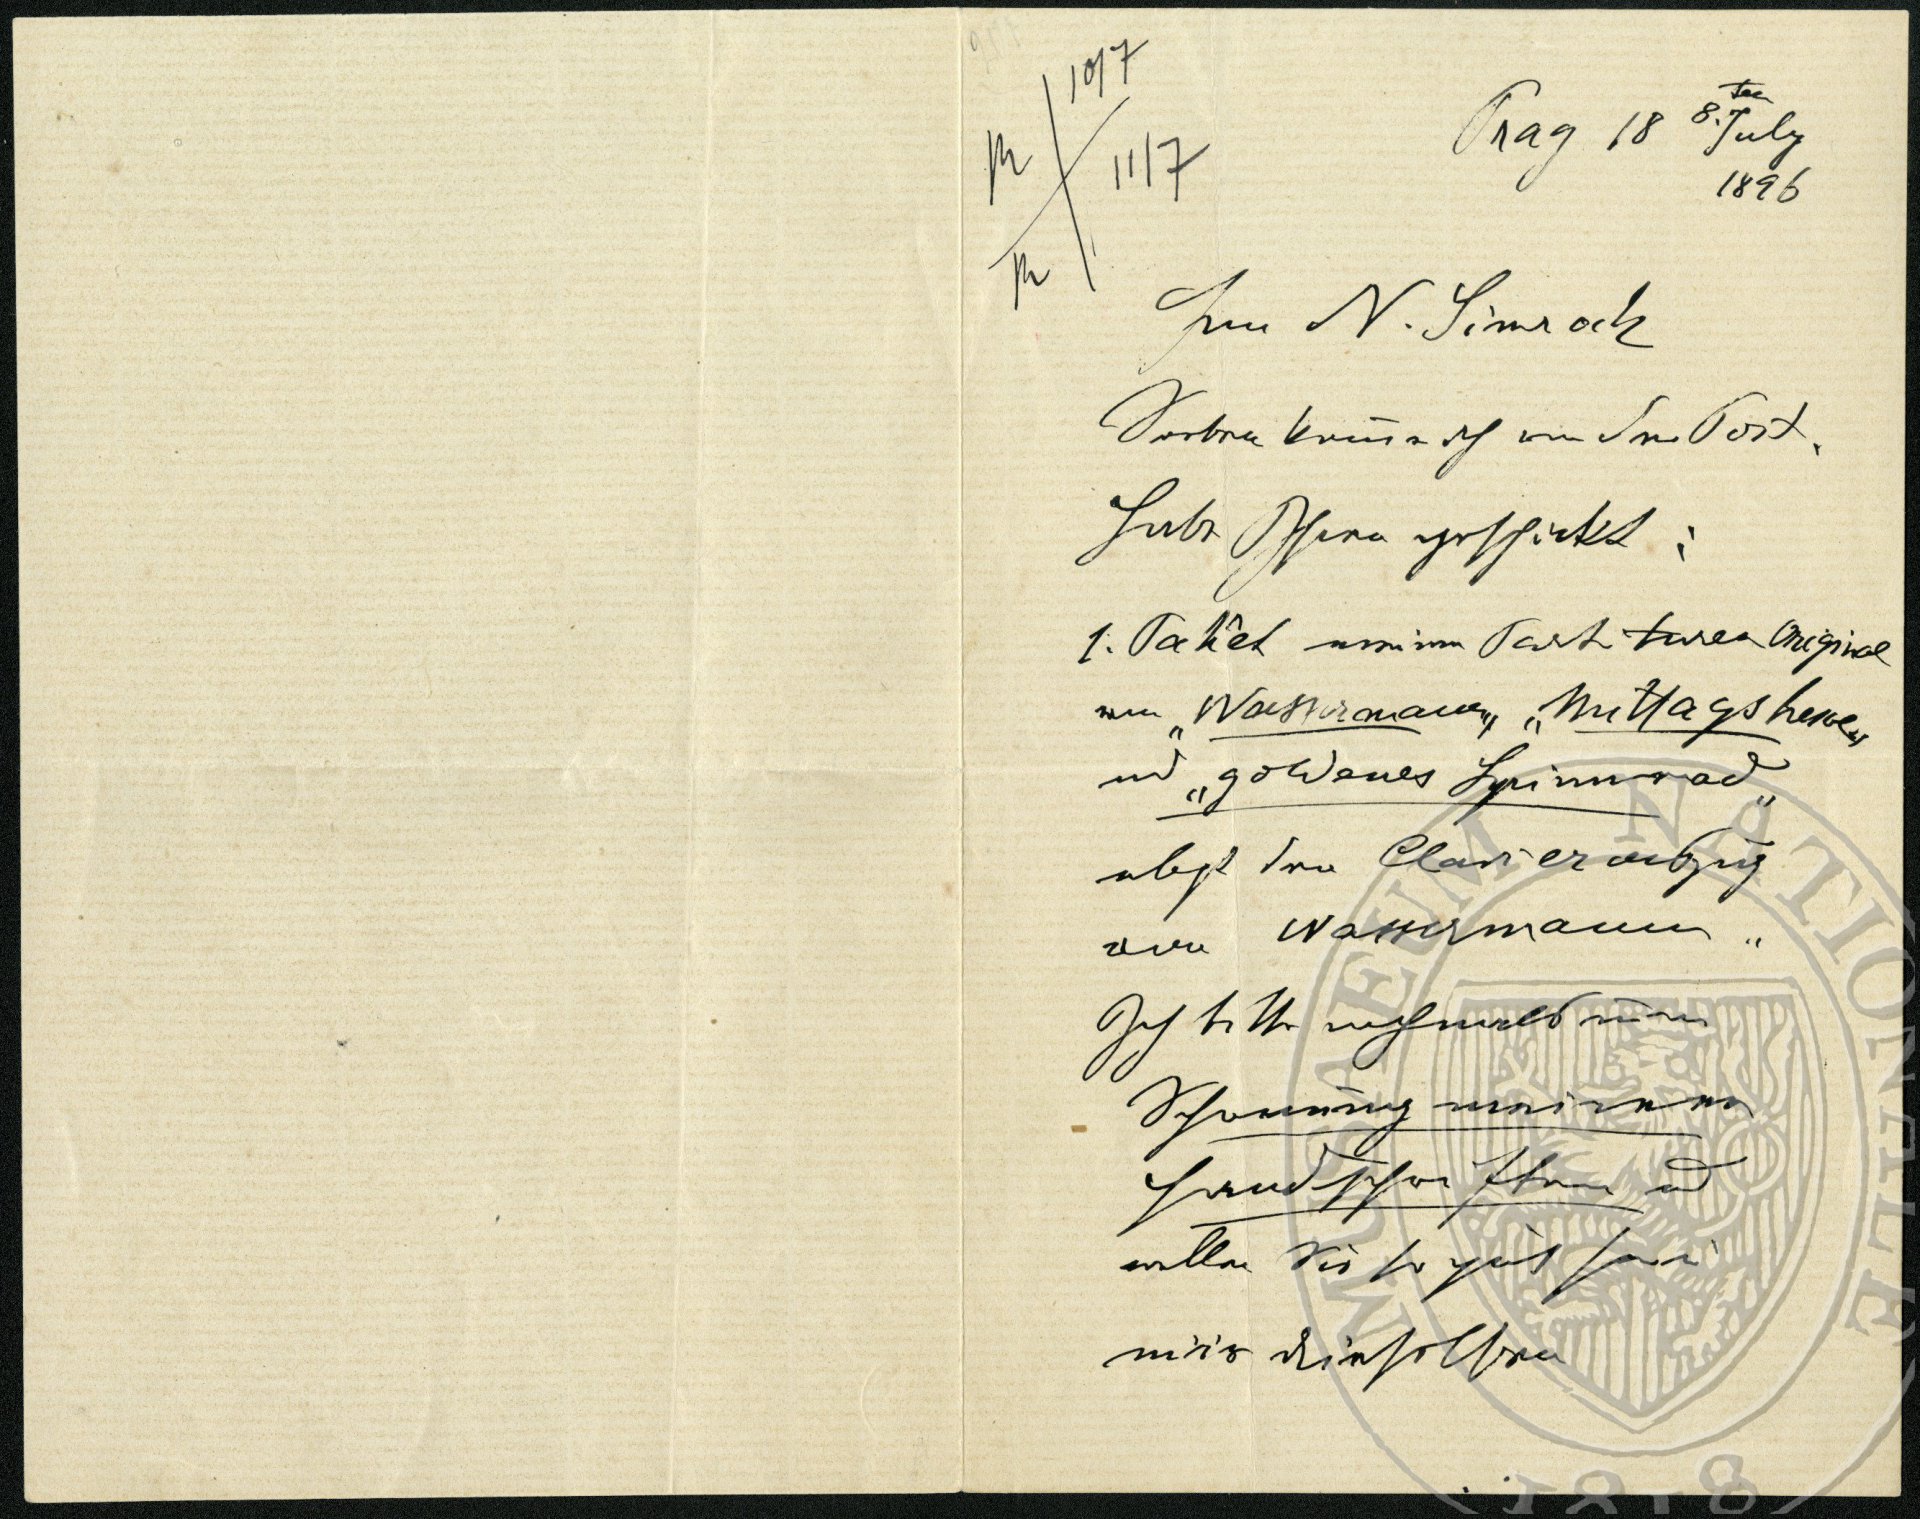 10/7
R
11/7
R
Prag 18 8.ten July
1896
Herrn N. Simrock
Soeben komme ich von der Post.
Habe Ihnen geschickt:
1. Packet meine Partituren Original
von „Wassermann“, „Mittagshexe“
und „goldenes Spinnrad“
nebst den Clavierauszug
von Wassermann“
Ich bitte nochmals um
Schonung meiner
Handschriften und
wollen Sie so gut sein
mir dieselben
MUSAEUM NATIONALE
1818